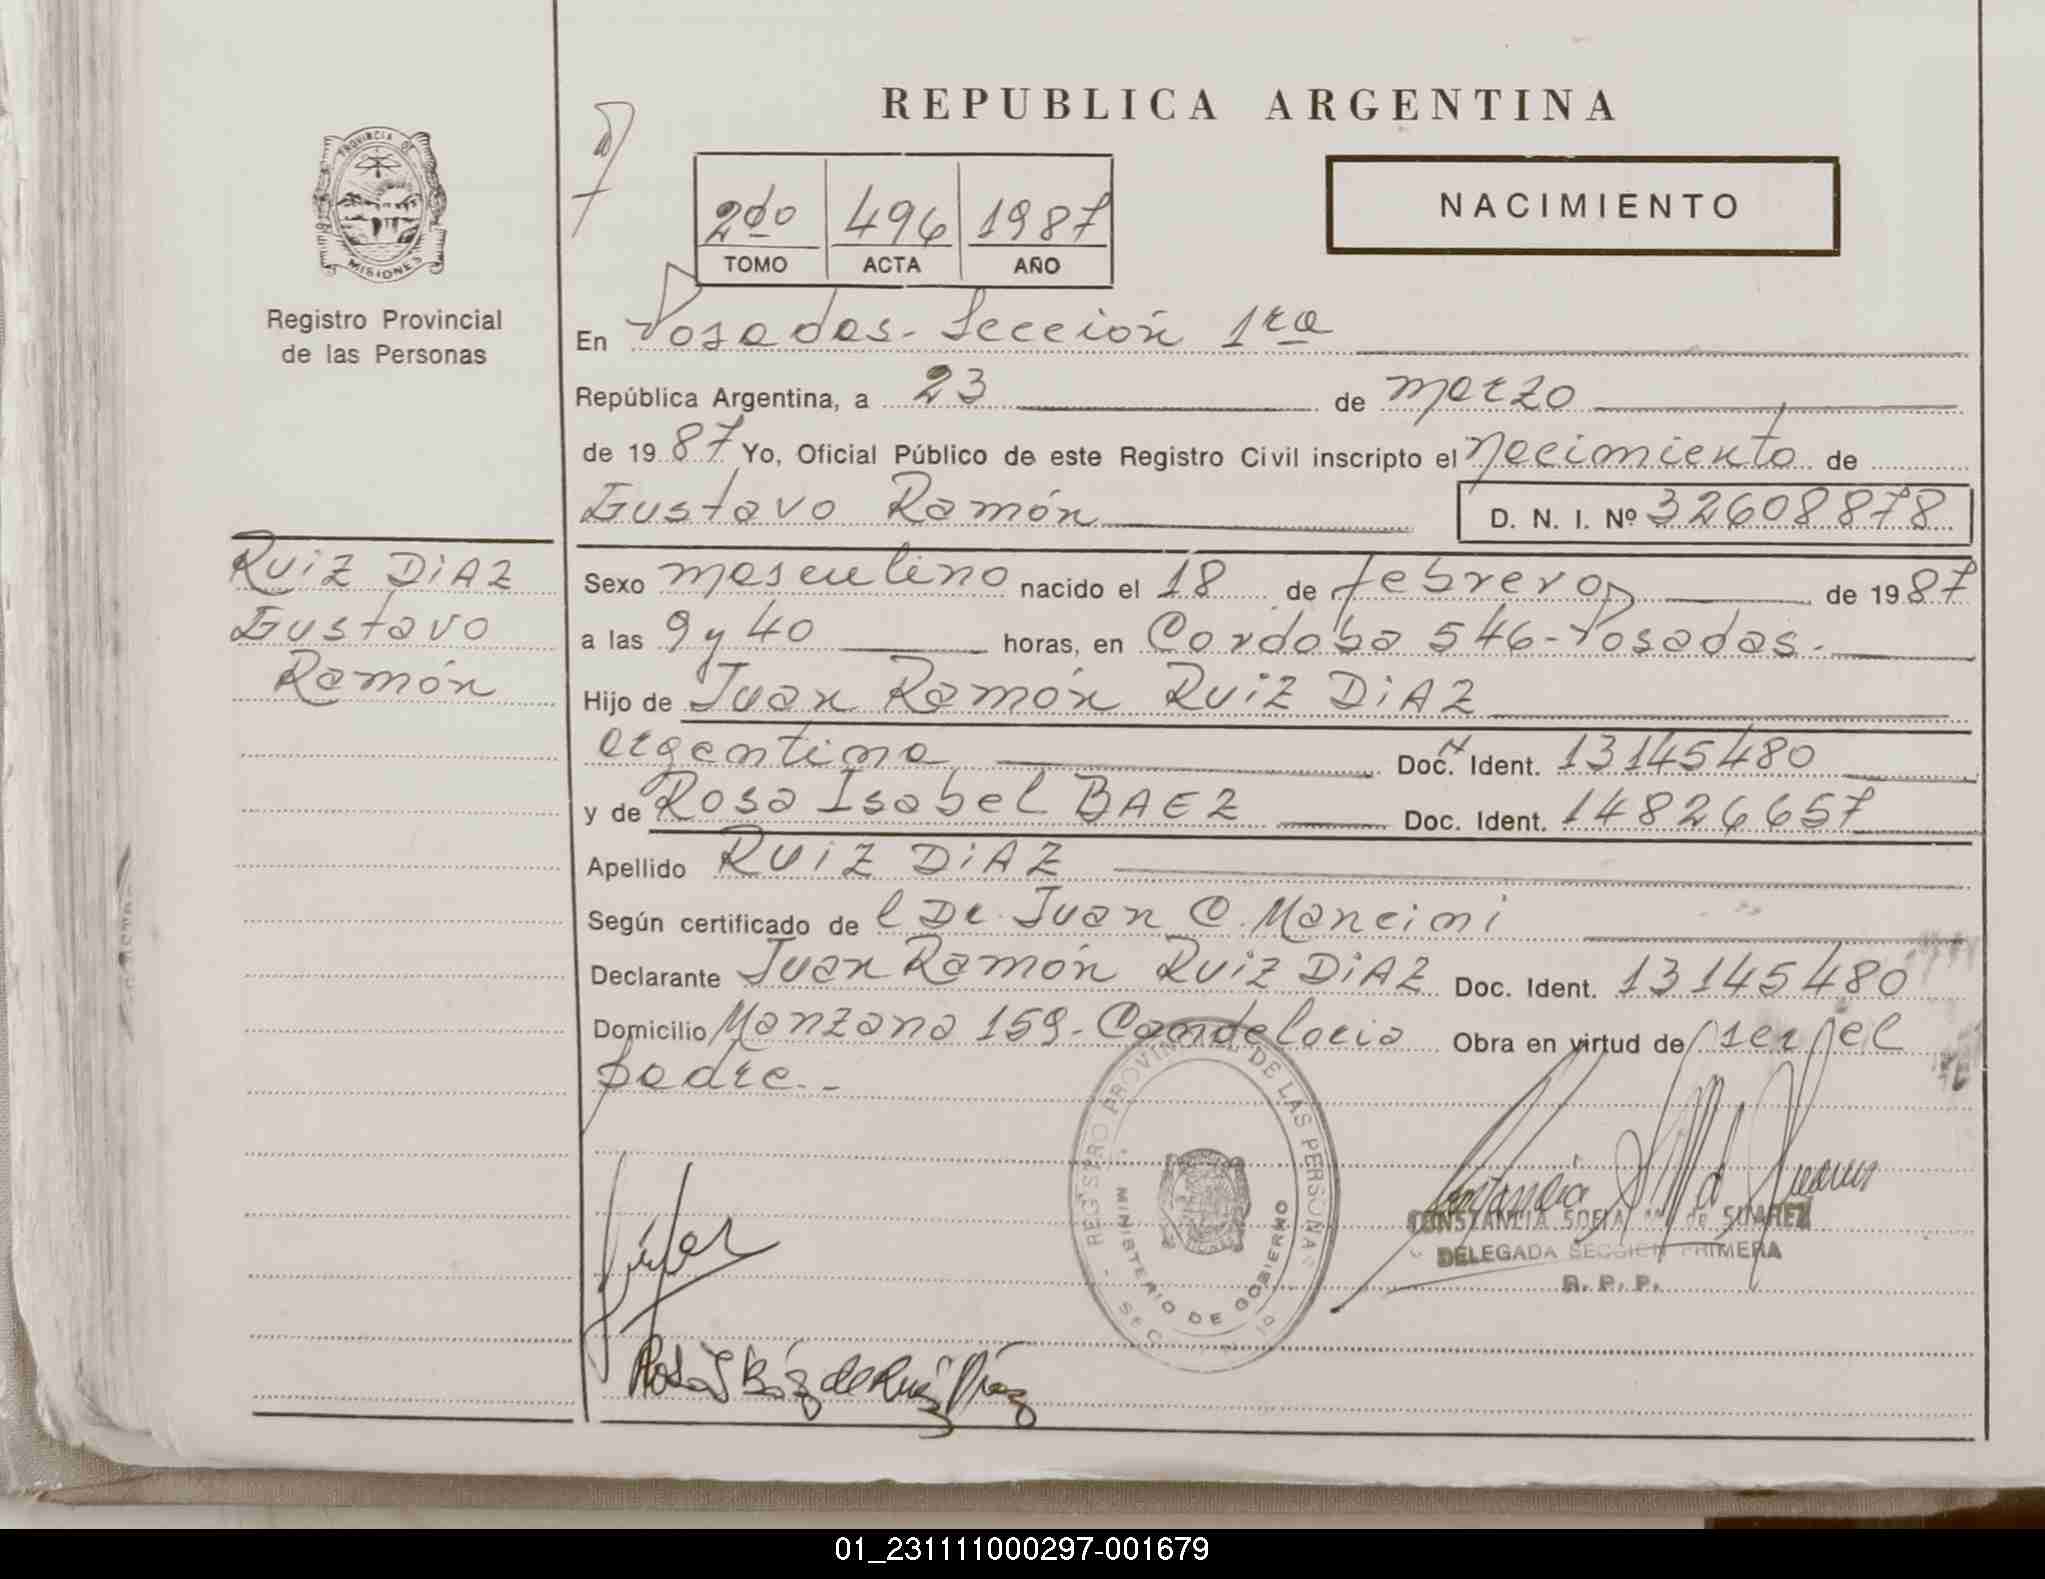 REPUBLICA ARGENTINA
PROVINCIA DE MISIONES
Registro Provincial
de las Personas
2do 496 1987
TOMO ACTA AÑO
NACIMIENTO
En Posadas - Sección 1ra
República Argentina, a 23 de marzo
de 1987 Yo, Oficial Público de este Registro Civil inscripto el nacimiento de
Gustavo Ramón D. N. I. Nº 32608878
RUIZ DIAZ
Gustavo
Ramón
Sexo masculino nacido el 18 de febrero de 1987
a las 9 y 40 horas, en Cordoba 546 - Posadas.-
Hijo de Juan Ramón RUIZ DIAZ
argentina Doc. Ident. 13145480
y de Rosa Isabel BAEZ Doc. Ident. 14826657
Apellido RUIZ DIAZ
Según certificado de l Dr. Juan C. Mancini
Declarante Juan Ramón RUIZ DIAZ Doc. Ident. 13145480
Domicilio Manzana 159 - Candelaria Obra en virtud de ser el
padre.-
REGISTRO PROVINCIAL DE LAS PERSONAS
MINISTERIO DE GOBIERNO
CONSTANCIA SOFIA M. de SUAREZ
DELEGADA SECCION PRIMERA
R. P. P.
Rosa I Báez de Ruiz Díaz
01_231111000297-001679